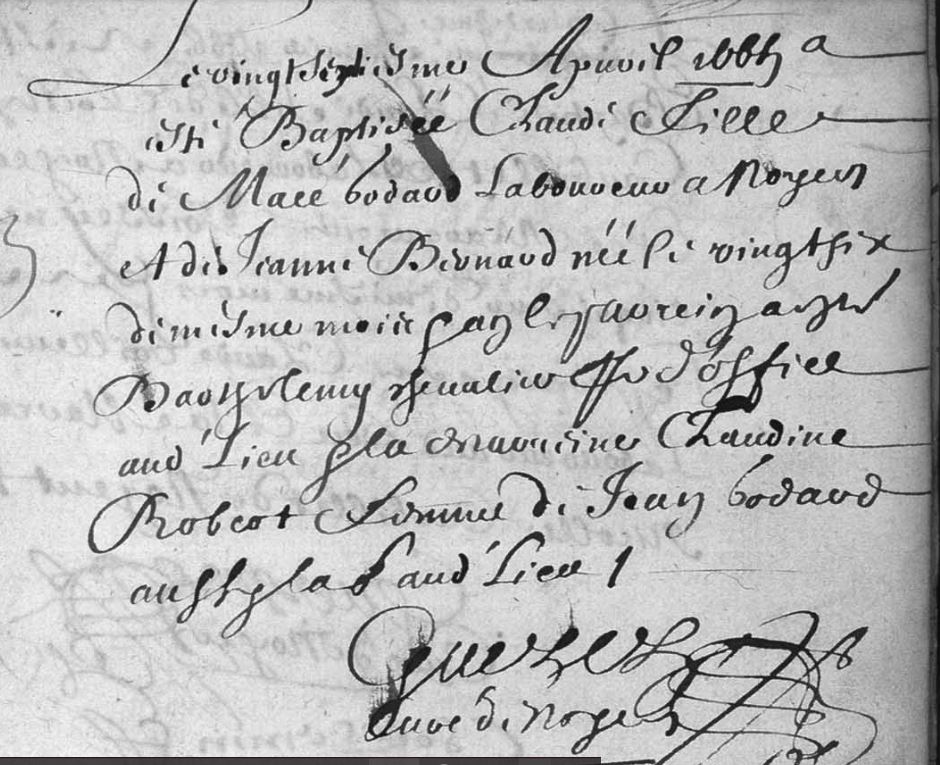 Le vingt septiesme Apuril 166 a
esté Baptiséé Claude Fille
de Macé bodard Laboureur a Noyers
et de Jeanne Bernard néé le vingt six
de mesme mois le parein a esté
Barthelemy chevalier d'office
aud Lieu la maraine Claudine
Robert Femme de Jean bodard
aussy aud Lieu
Curé de Noyers